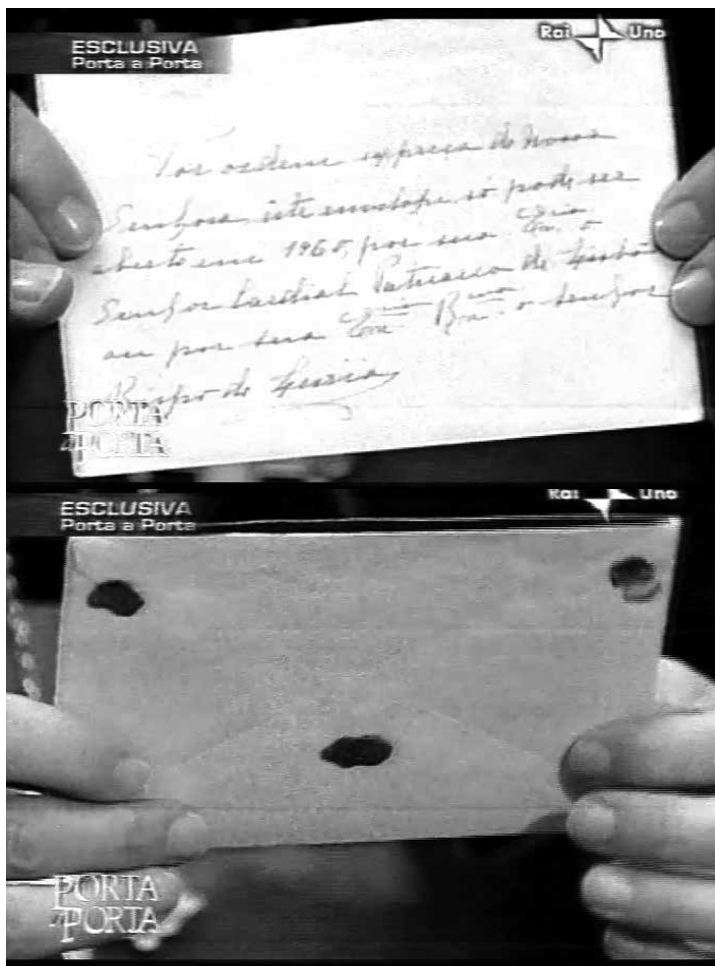 ESCLUSIVA
Porta a Porta
Rai Uno
Por ordem expreça de Nossa
Senhora este envelope só pode ser
aberto em 1960, por sua Cia Em. o
Senhor Cardial Patriarca de Lisboa
ou por sua Cia Ex. Rma. o Senhor
Bispo de Leiria
PORTA
a PORTA
ESCLUSIVA
Porta a Porta
Rai Uno
PORTA
a PORTA